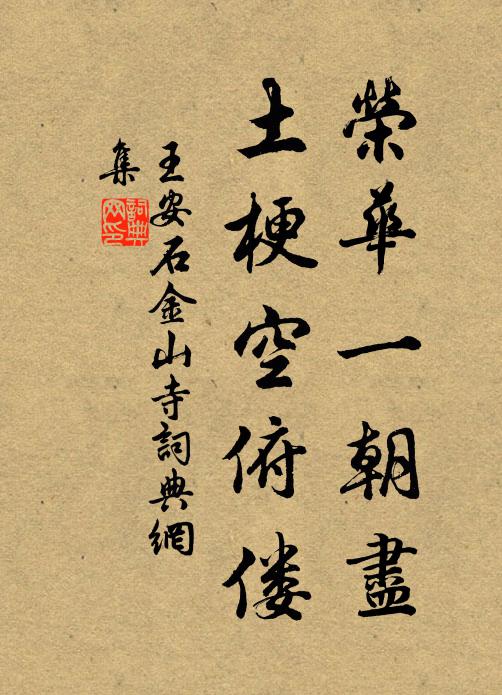 榮華一朝盡
土梗空俯僂
王安石金山寺詞典網
集
詞典網印